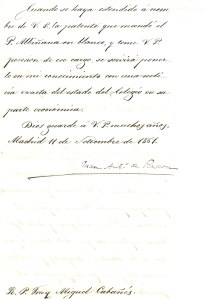 Cuando se haya estendido a nom-
bre de V. P. la patente que mandó el
P. Albiñana en blanco, y tome V. P.
posesion de su cargo, se servirá poner-
lo en mi conocimiento con una noti-
cia exacta del estado del Colegio en su
parte económica.
Dios guarde á V. P. muchos años.
Madrid 11 de Setiembre de 1861.
Juan Antº de
R. P. Fray Miguel Cabañés.